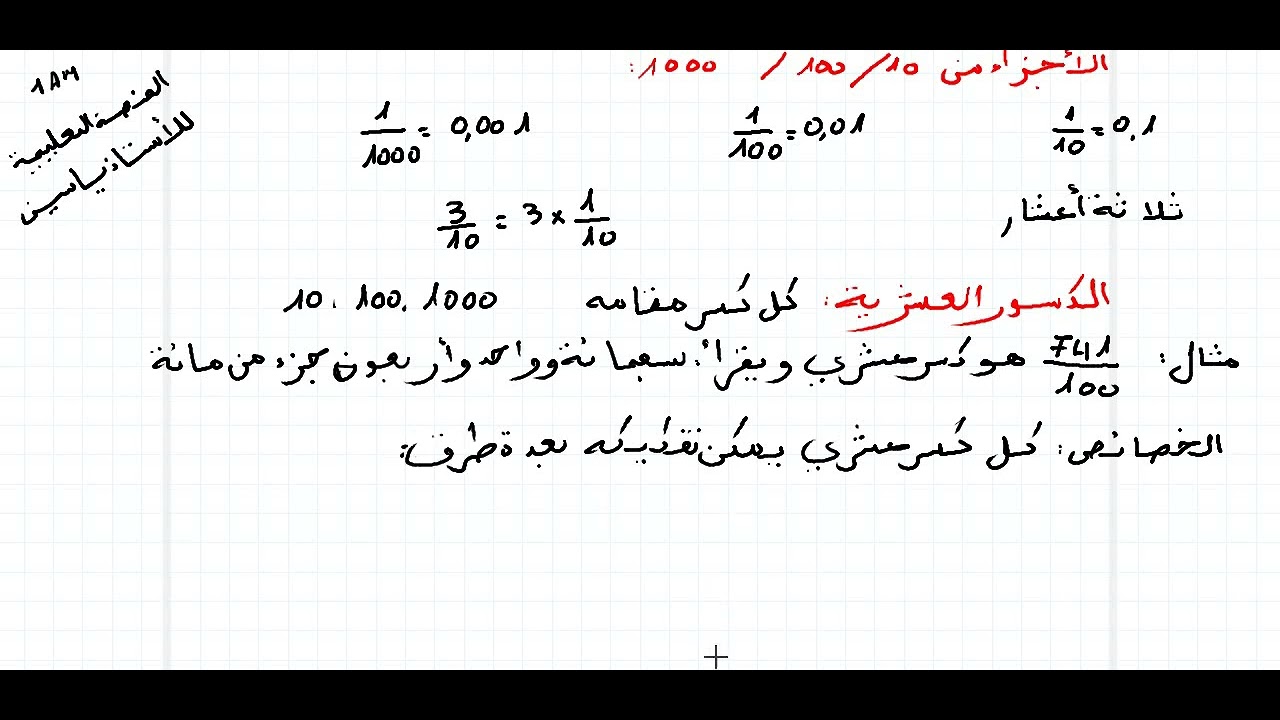 1AM
المنصة التعليمية
للأستاذ ياسين
الأجزاء من 10/ 100/ 1000:
1/10 = 0,1 1/100 = 0,01 1/1000 = 0,001
ثلاثة أعشار 3/10 = 3 × 1/10
الكسور العشرية: كل كسر مقامه 10. 100. 1000
مثال: 741/100 هو كسر عشري ويقرأ: سبعمائة وواحد وأربعون جزء من مائة
الخصائص: كل كسر عشري يمكن تفكيكه بعدة طرق: